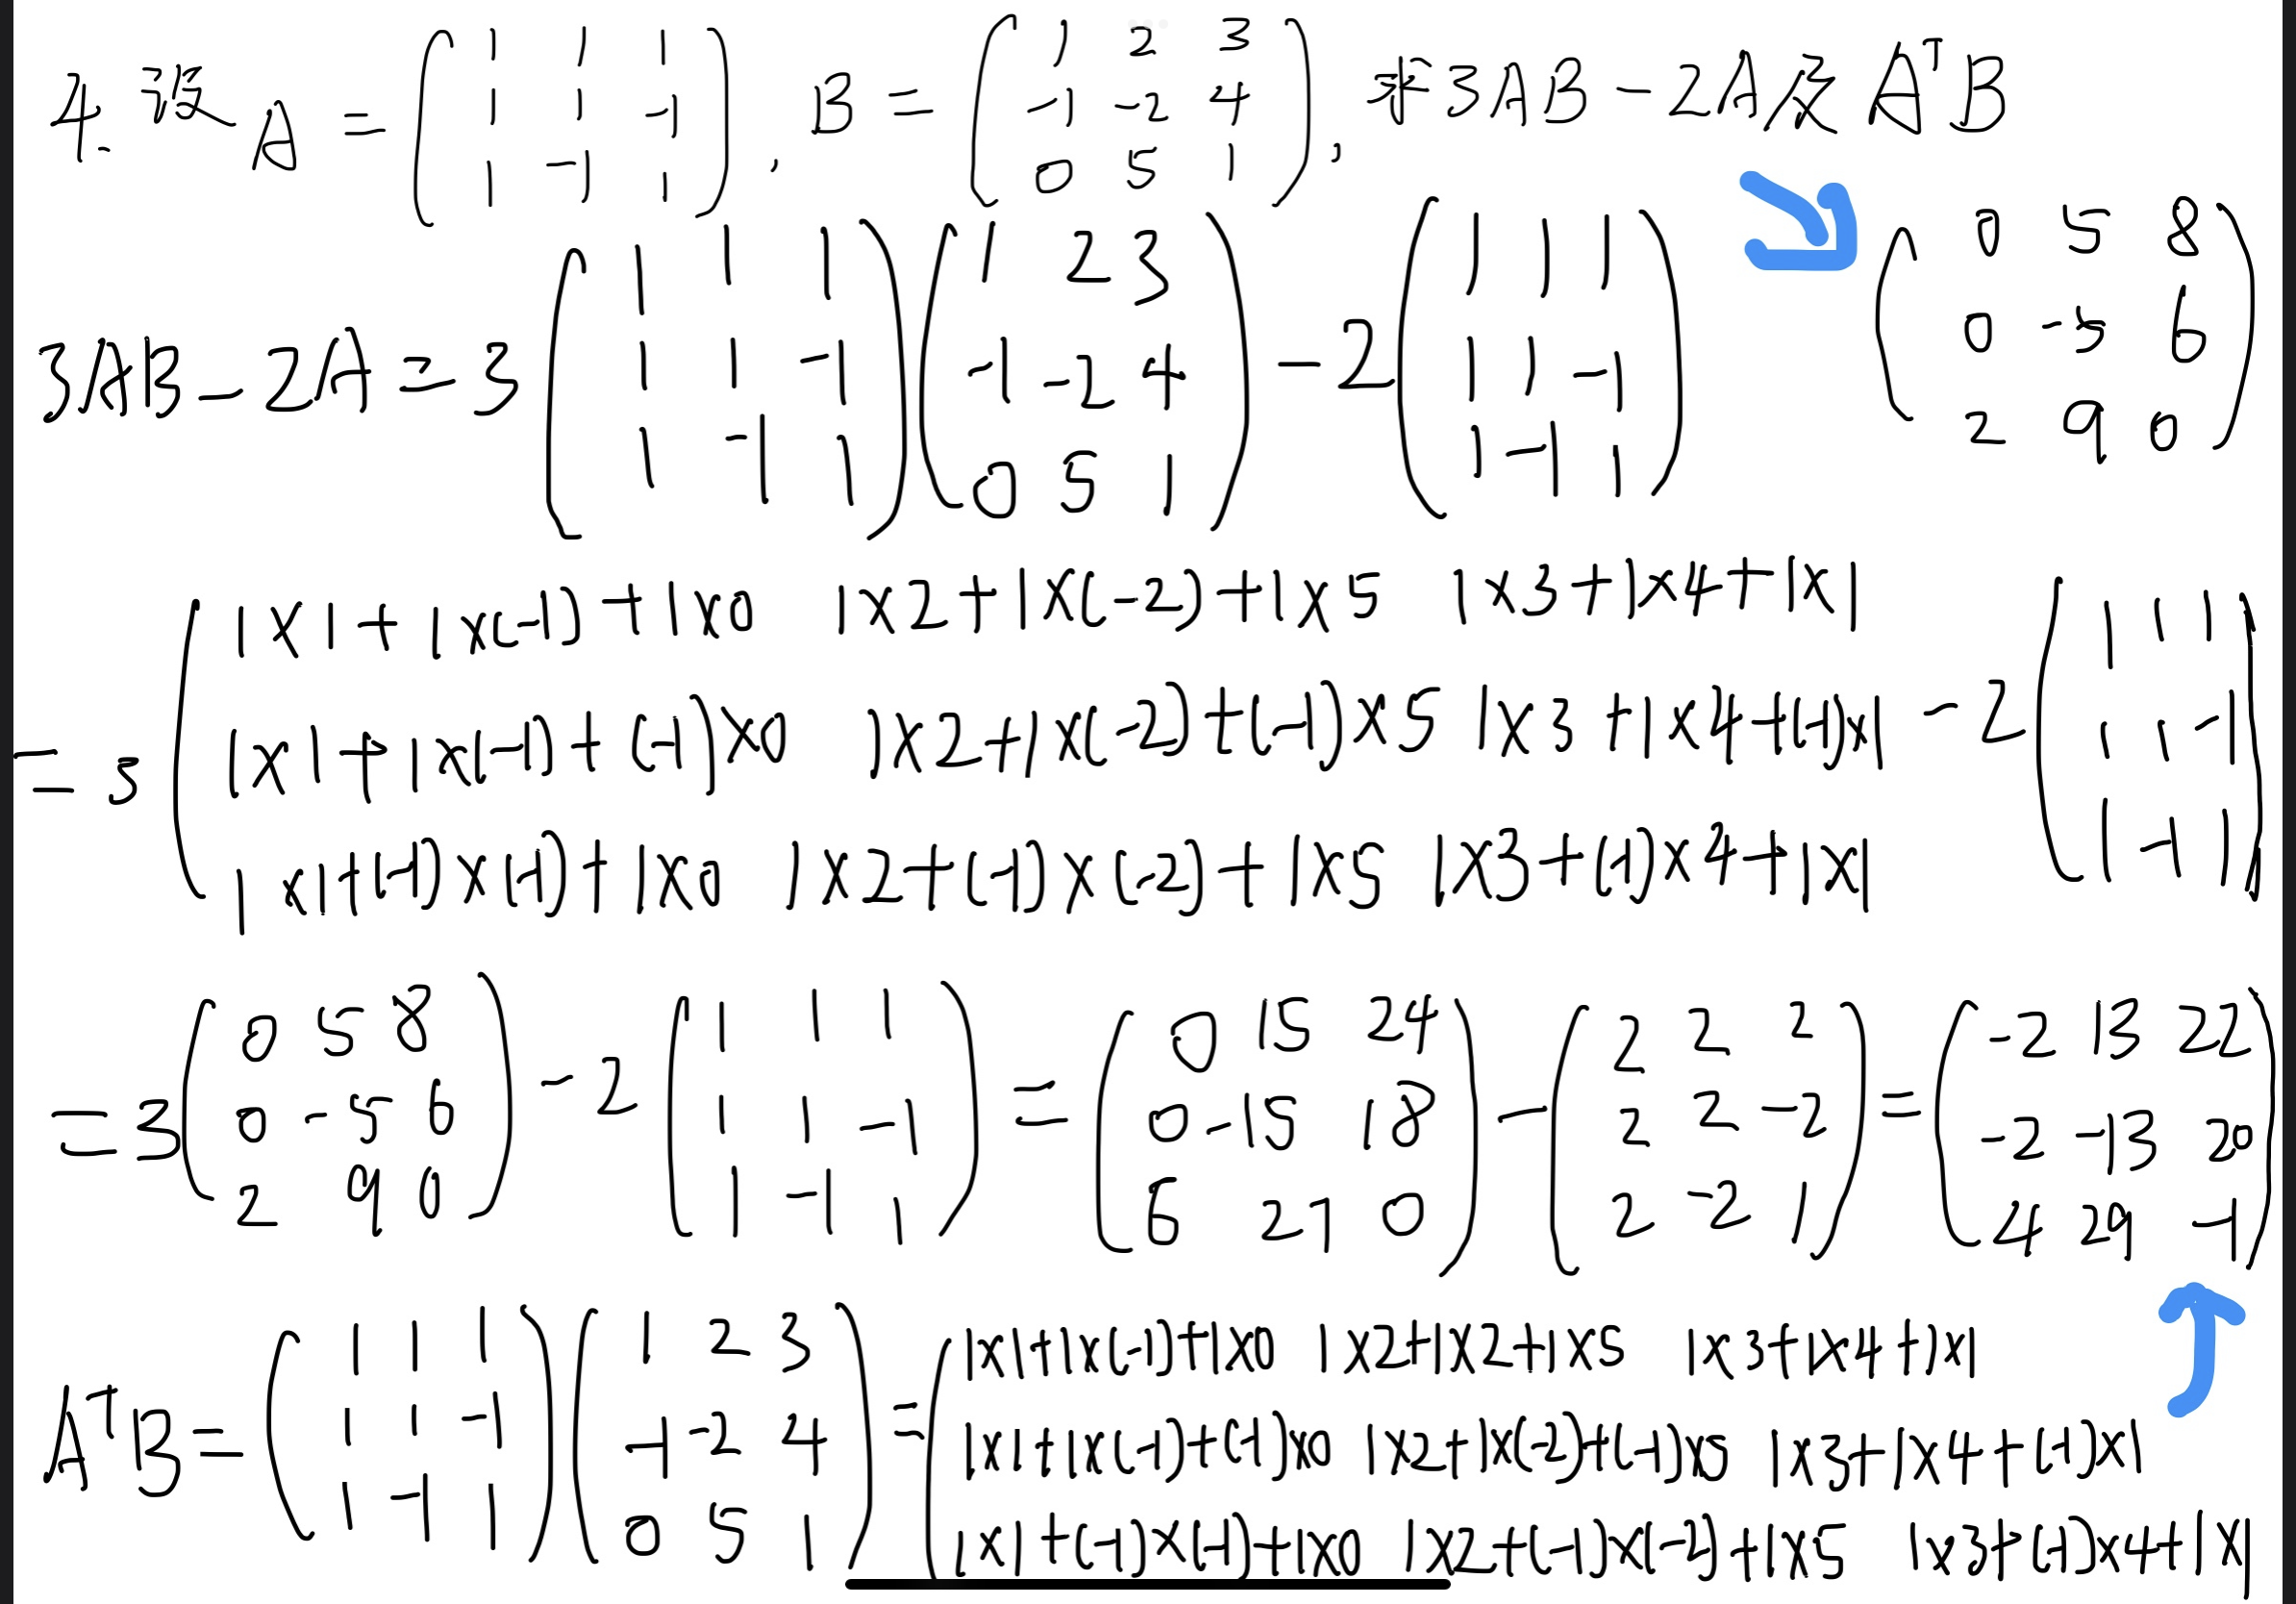 4. 设 A = ( 1 1 1 ; 1 1 -1 ; 1 -1 1 ), B = ( 1 2 3 ; -1 -2 4 ; 0 5 1 ), 求 3AB - 2A 及 AᵀB
3AB - 2A = 3 ( 1 1 1 ; 1 1 -1 ; 1 -1 1 ) ( 1 2 3 ; -1 -2 4 ; 0 5 1 ) - 2 ( 1 1 1 ; 1 1 -1 ; 1 -1 1 )
( 0 5 8 ; 0 -5 6 ; 2 9 0 )
= 3 ( 1×1+1×(-1)+1×0 1×2+1×(-2)+1×5 1×3+1×4+1×1 ; 1×1+1×(-1)+(-1)×0 1×2+1×(-2)+(-1)×5 1×3+1×4+(-1)×1 ; 1×1+(-1)×(-1)+1×0 1×2+(-1)×(-2)+1×5 1×3+(-1)×4+1×1 ) - 2 ( 1 1 1 ; 1 1 -1 ; 1 -1 1 )
= 3 ( 0 5 8 ; 0 -5 6 ; 2 9 0 ) - 2 ( 1 1 1 ; 1 1 -1 ; 1 -1 1 ) = ( 0 15 24 ; 0 -15 18 ; 6 27 0 ) - ( 2 2 2 ; 2 2 -2 ; 2 -2 1 ) = ( -2 13 22 ; -2 -13 20 ; 4 29 -1 )
AᵀB = ( 1 1 1 ; 1 1 -1 ; 1 -1 1 ) ( 1 2 3 ; -1 -2 4 ; 0 5 1 ) = ( 1×1+1×(-1)+1×0 1×2+1×2+1×5 1×3+1×4+1×1 ; 1×1+1×(-1)+(-1)×0 1×2+1×(-2)+(-1)×5 1×3+1×4+(-1)×1 ; 1×1+(-1)×(-1)+1×0 1×2+(-1)×(-2)+1×5 1×3+(-1)×4+1×1